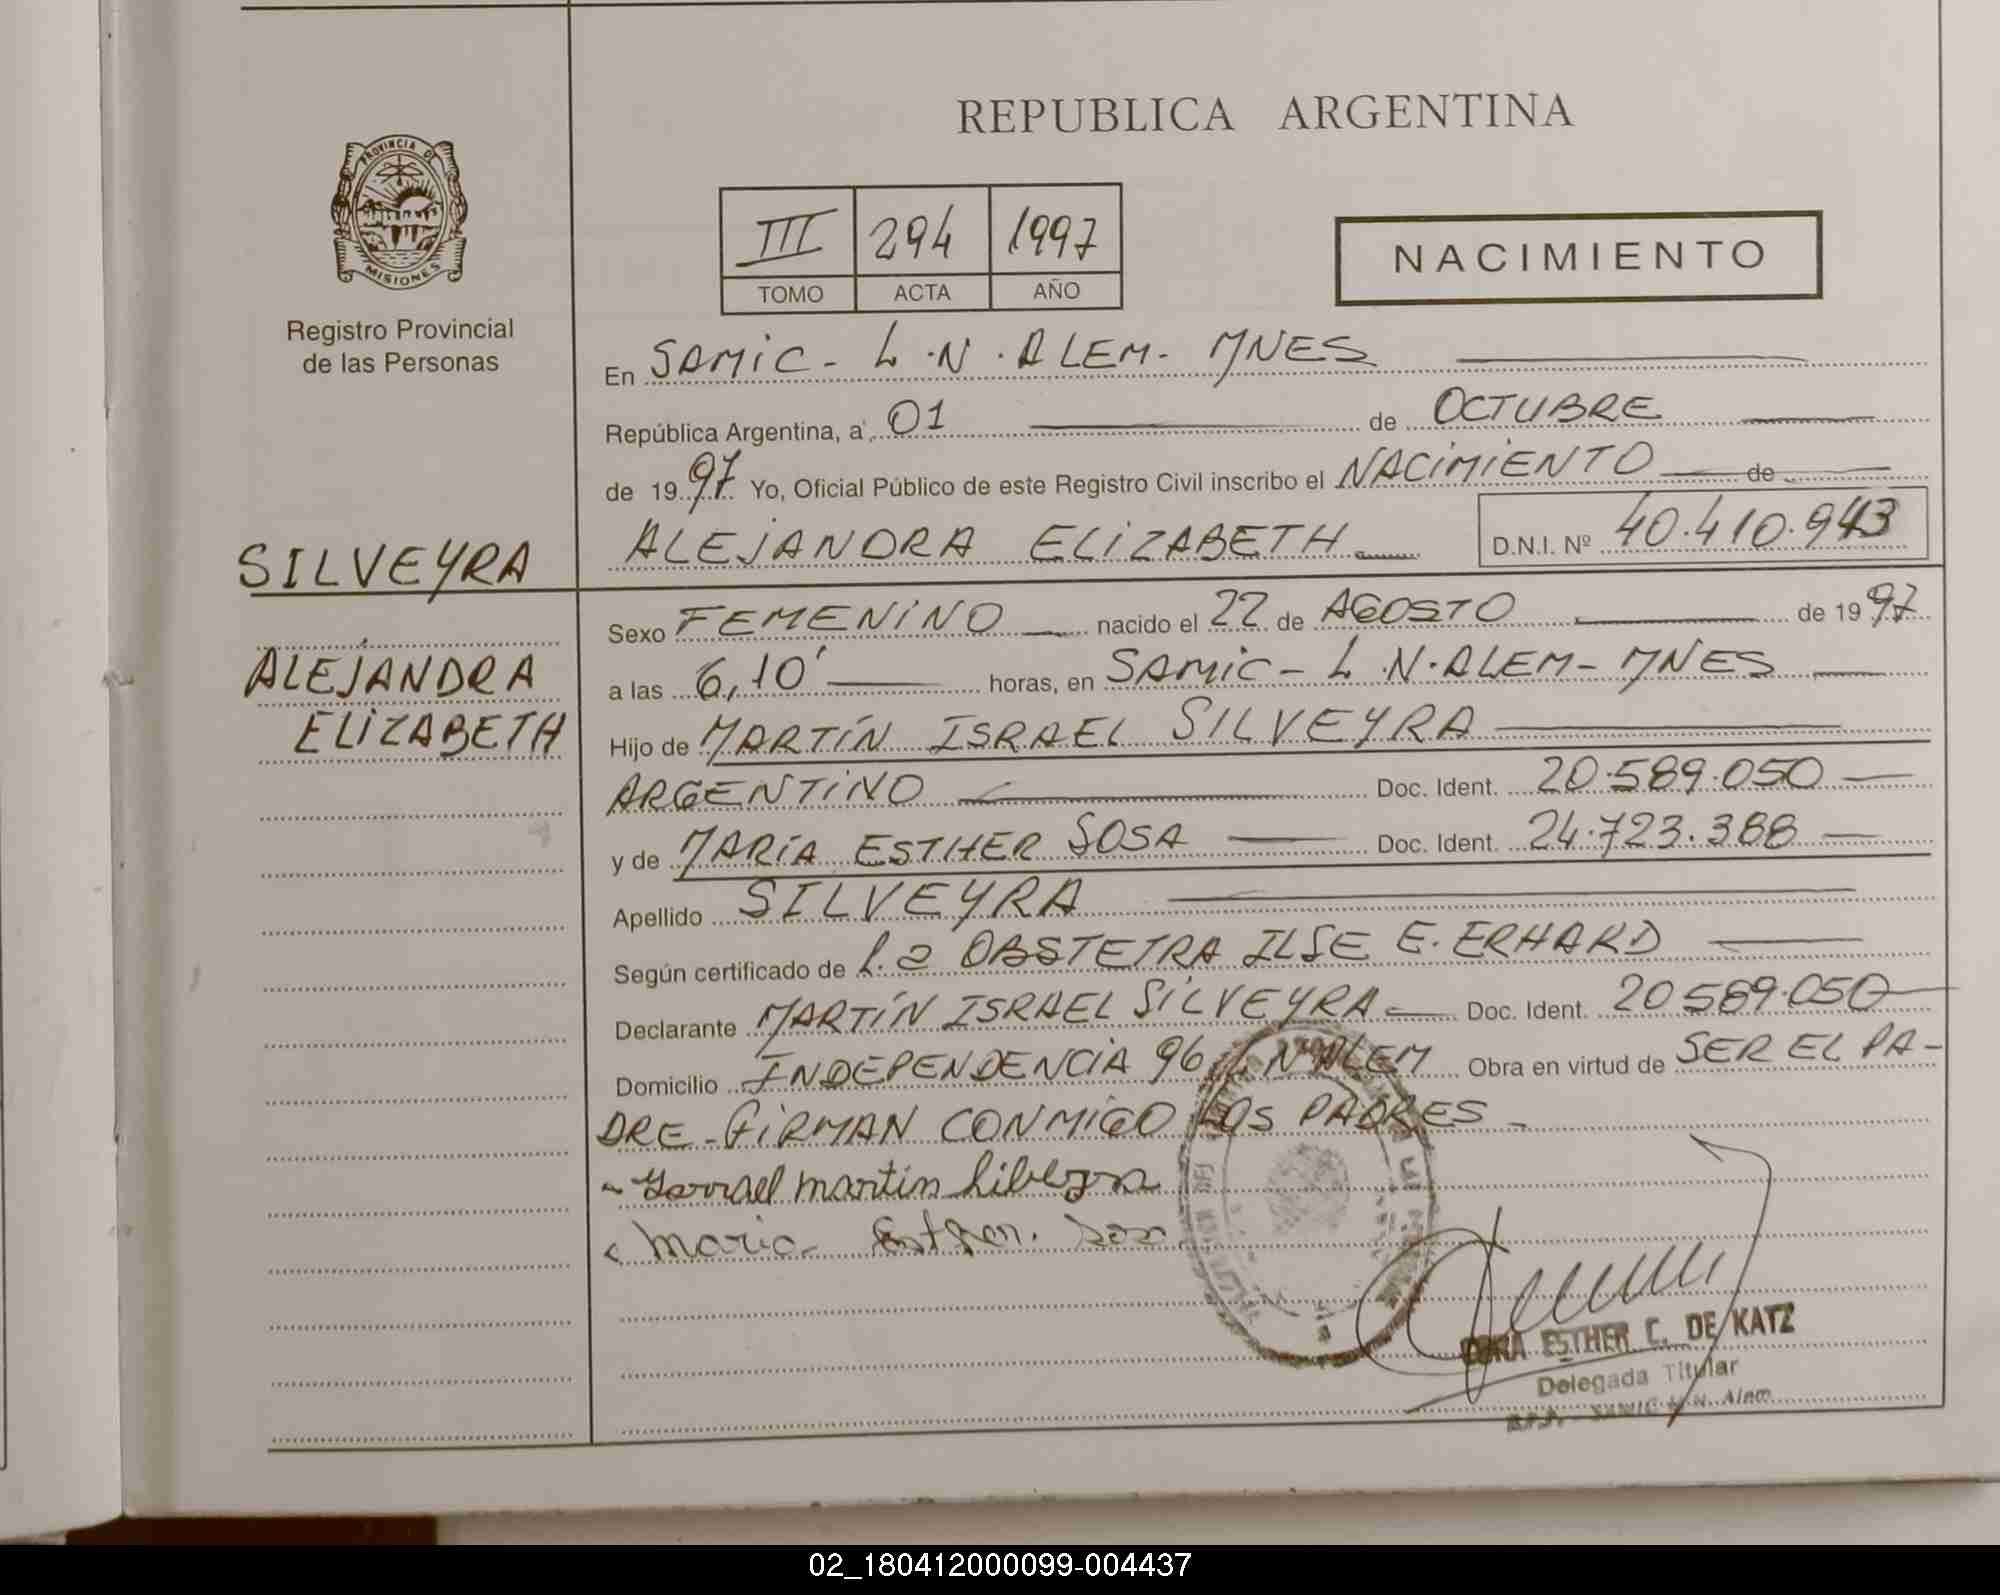 REPUBLICA ARGENTINA
PROVINCIA DE
MISIONES
Registro Provincial
de las Personas
III 294 1997
TOMO ACTA AÑO
NACIMIENTO
En SAMIC - L.N. ALEM - MNES
República Argentina, a 01 de OCTUBRE
de 1997 Yo, Oficial Público de este Registro Civil inscribo el NACIMIENTO de
ALEJANDRA ELIZABETH D.N.I. Nº 40.410.943
SILVEYRA
ALEJANDRA
ELIZABETH
Sexo FEMENINO nacido el 22 de AGOSTO de 1997
a las 6,10' horas, en SAMIC - L.N. ALEM - MNES
Hijo de MARTÍN ISRAEL SILVEYRA
ARGENTINO Doc. Ident. 20.589.050
y de MARÍA ESTHER SOSA Doc. Ident. 24.723.388
Apellido SILVEYRA
Según certificado de la OBSTETRA ILSE E. ERHARD
Declarante MARTÍN ISRAEL SILVEYRA Doc. Ident. 20589.050
Domicilio INDEPENDENCIA 96 L.N ALEM Obra en virtud de SER EL PA-
DRE - FIRMAN CONMIGO LOS PADRES -
martin
Maria Esther. Sosa
ESTHER C. DE KATZ
Delegada Titular
Alem
02_180412000099-004437